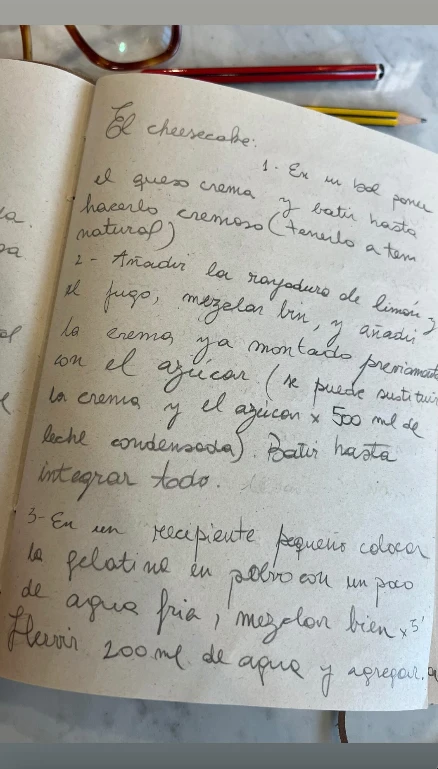 El cheesecake:
1- En un bol poner
el queso crema y batir hasta
hacerlo cremoso (tenerlo a tem
natural)
2- Añadir la rayadura de limón y
el jugo, mezclar bien, y añadir
la crema ya montada previamente
con el azúcar (se puede sustituir
la crema y el azúcar x 500 ml de
leche condensada). Batir hasta
integrar todo.
3- En un recipiente pequeño colocar
la gelatina en polvo con un poco
de agua fria, mezclar bien x 5'
Hervir 200 ml de agua y agregar